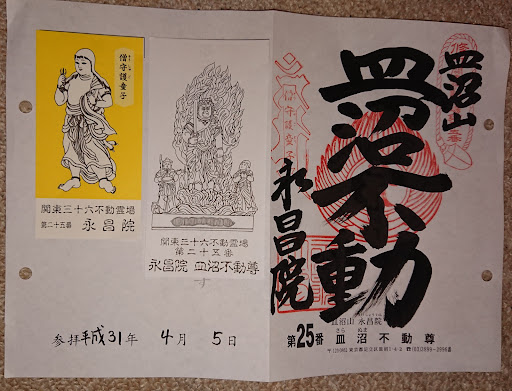 僧守護童子
関東三十六不動霊場
第二十五番 永昌院
関東三十六不動霊場
第二十五番
永昌院 皿沼不動尊
参拝平成31年 4月 5日
皿沼山
皿沼不動
永昌院
僧守護童子
皿沼山 永昌院
さら ぬま
第25番 皿沼不動尊